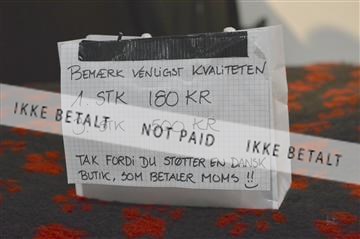 BEMÆRK VENLIGST KVALITETEN
1. STK 180 KR
STK 500 KR
TAK FORDI DU STØTTER EN DANSK
BUTIK, SOM BETALER MOMS !!
IKKE BETALT NOT PAID IKKE BETALT